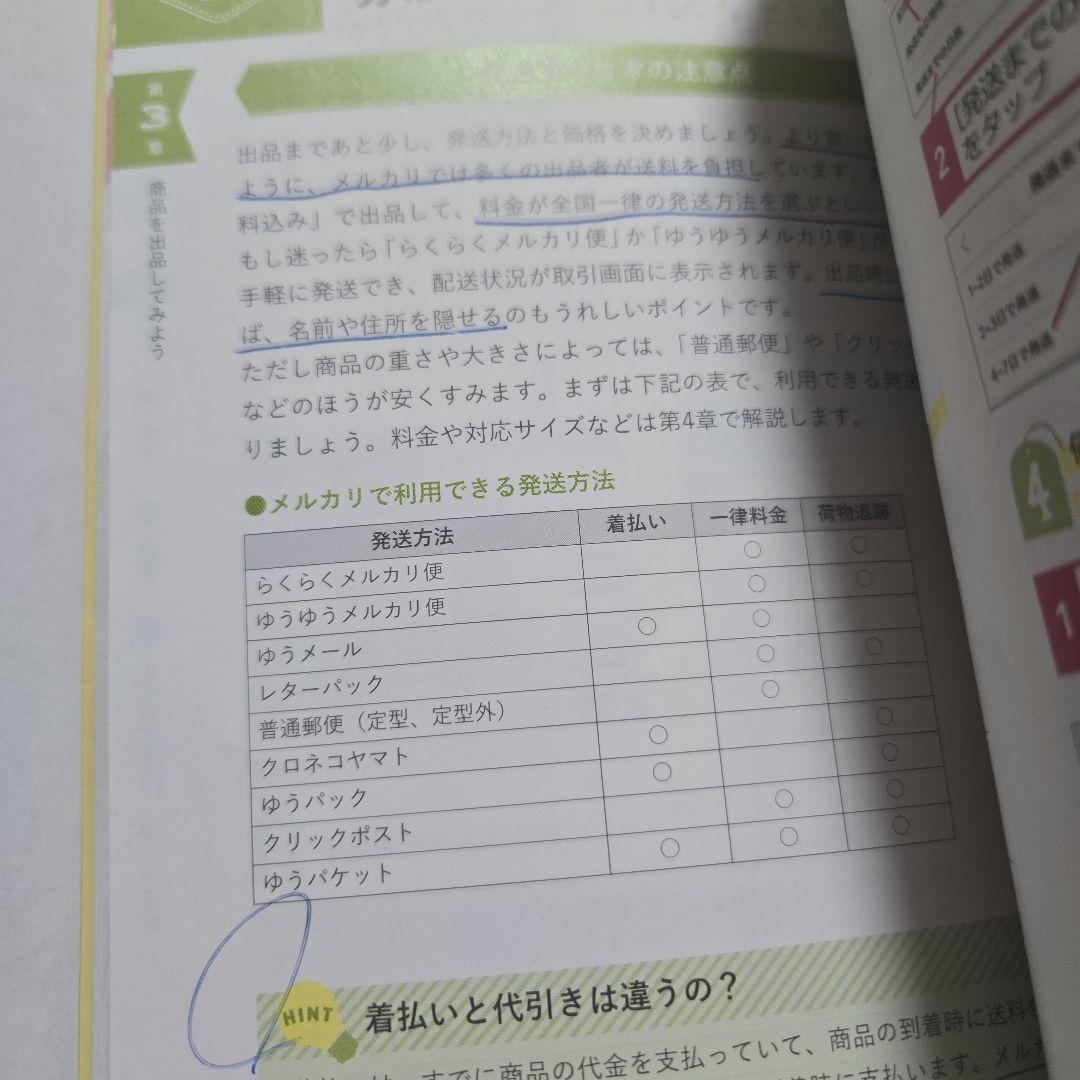 第3章
商品を出品してみよう
の注意点
出品まであと少し、発送方法と価格を決めましょう。より買い
ように、メルカリでは多くの出品者が送料を負担しています。
料込み」で出品して、料金が全国一律の発送方法を選ぶといい
もし迷ったら「らくらくメルカリ便」か「ゆうゆうメルカリ便」が
手軽に発送でき、配送状況が取引画面に表示されます。出品時に
ば、名前や住所を隠せるのもうれしいポイントです。
ただし商品の重さや大きさによっては、「普通郵便」や「クリッ
などのほうが安くすみます。まずは下記の表で、利用できる発送
りましょう。料金や対応サイズなどは第4章で解説します。
●メルカリで利用できる発送方法
発送方法 着払い 一律料金 荷物追跡
らくらくメルカリ便 ○ ○
ゆうゆうメルカリ便 ○ ○
ゆうメール ○ ○
レターパック ○ ○
普通郵便（定型、定型外） ○
クロネコヤマト ○ ○
ゆうパック ○ ○
クリックポスト ○ ○
ゆうパケット ○ ○ ○
HINT 着払いと代引きは違うの？
すでに商品の代金を支払っていて、商品の到着時に送料を
時に支払います。メルカ
2 [発送までの
をタップ
1~2日で発送
2~3日で発送
4~7日で発送
4
1